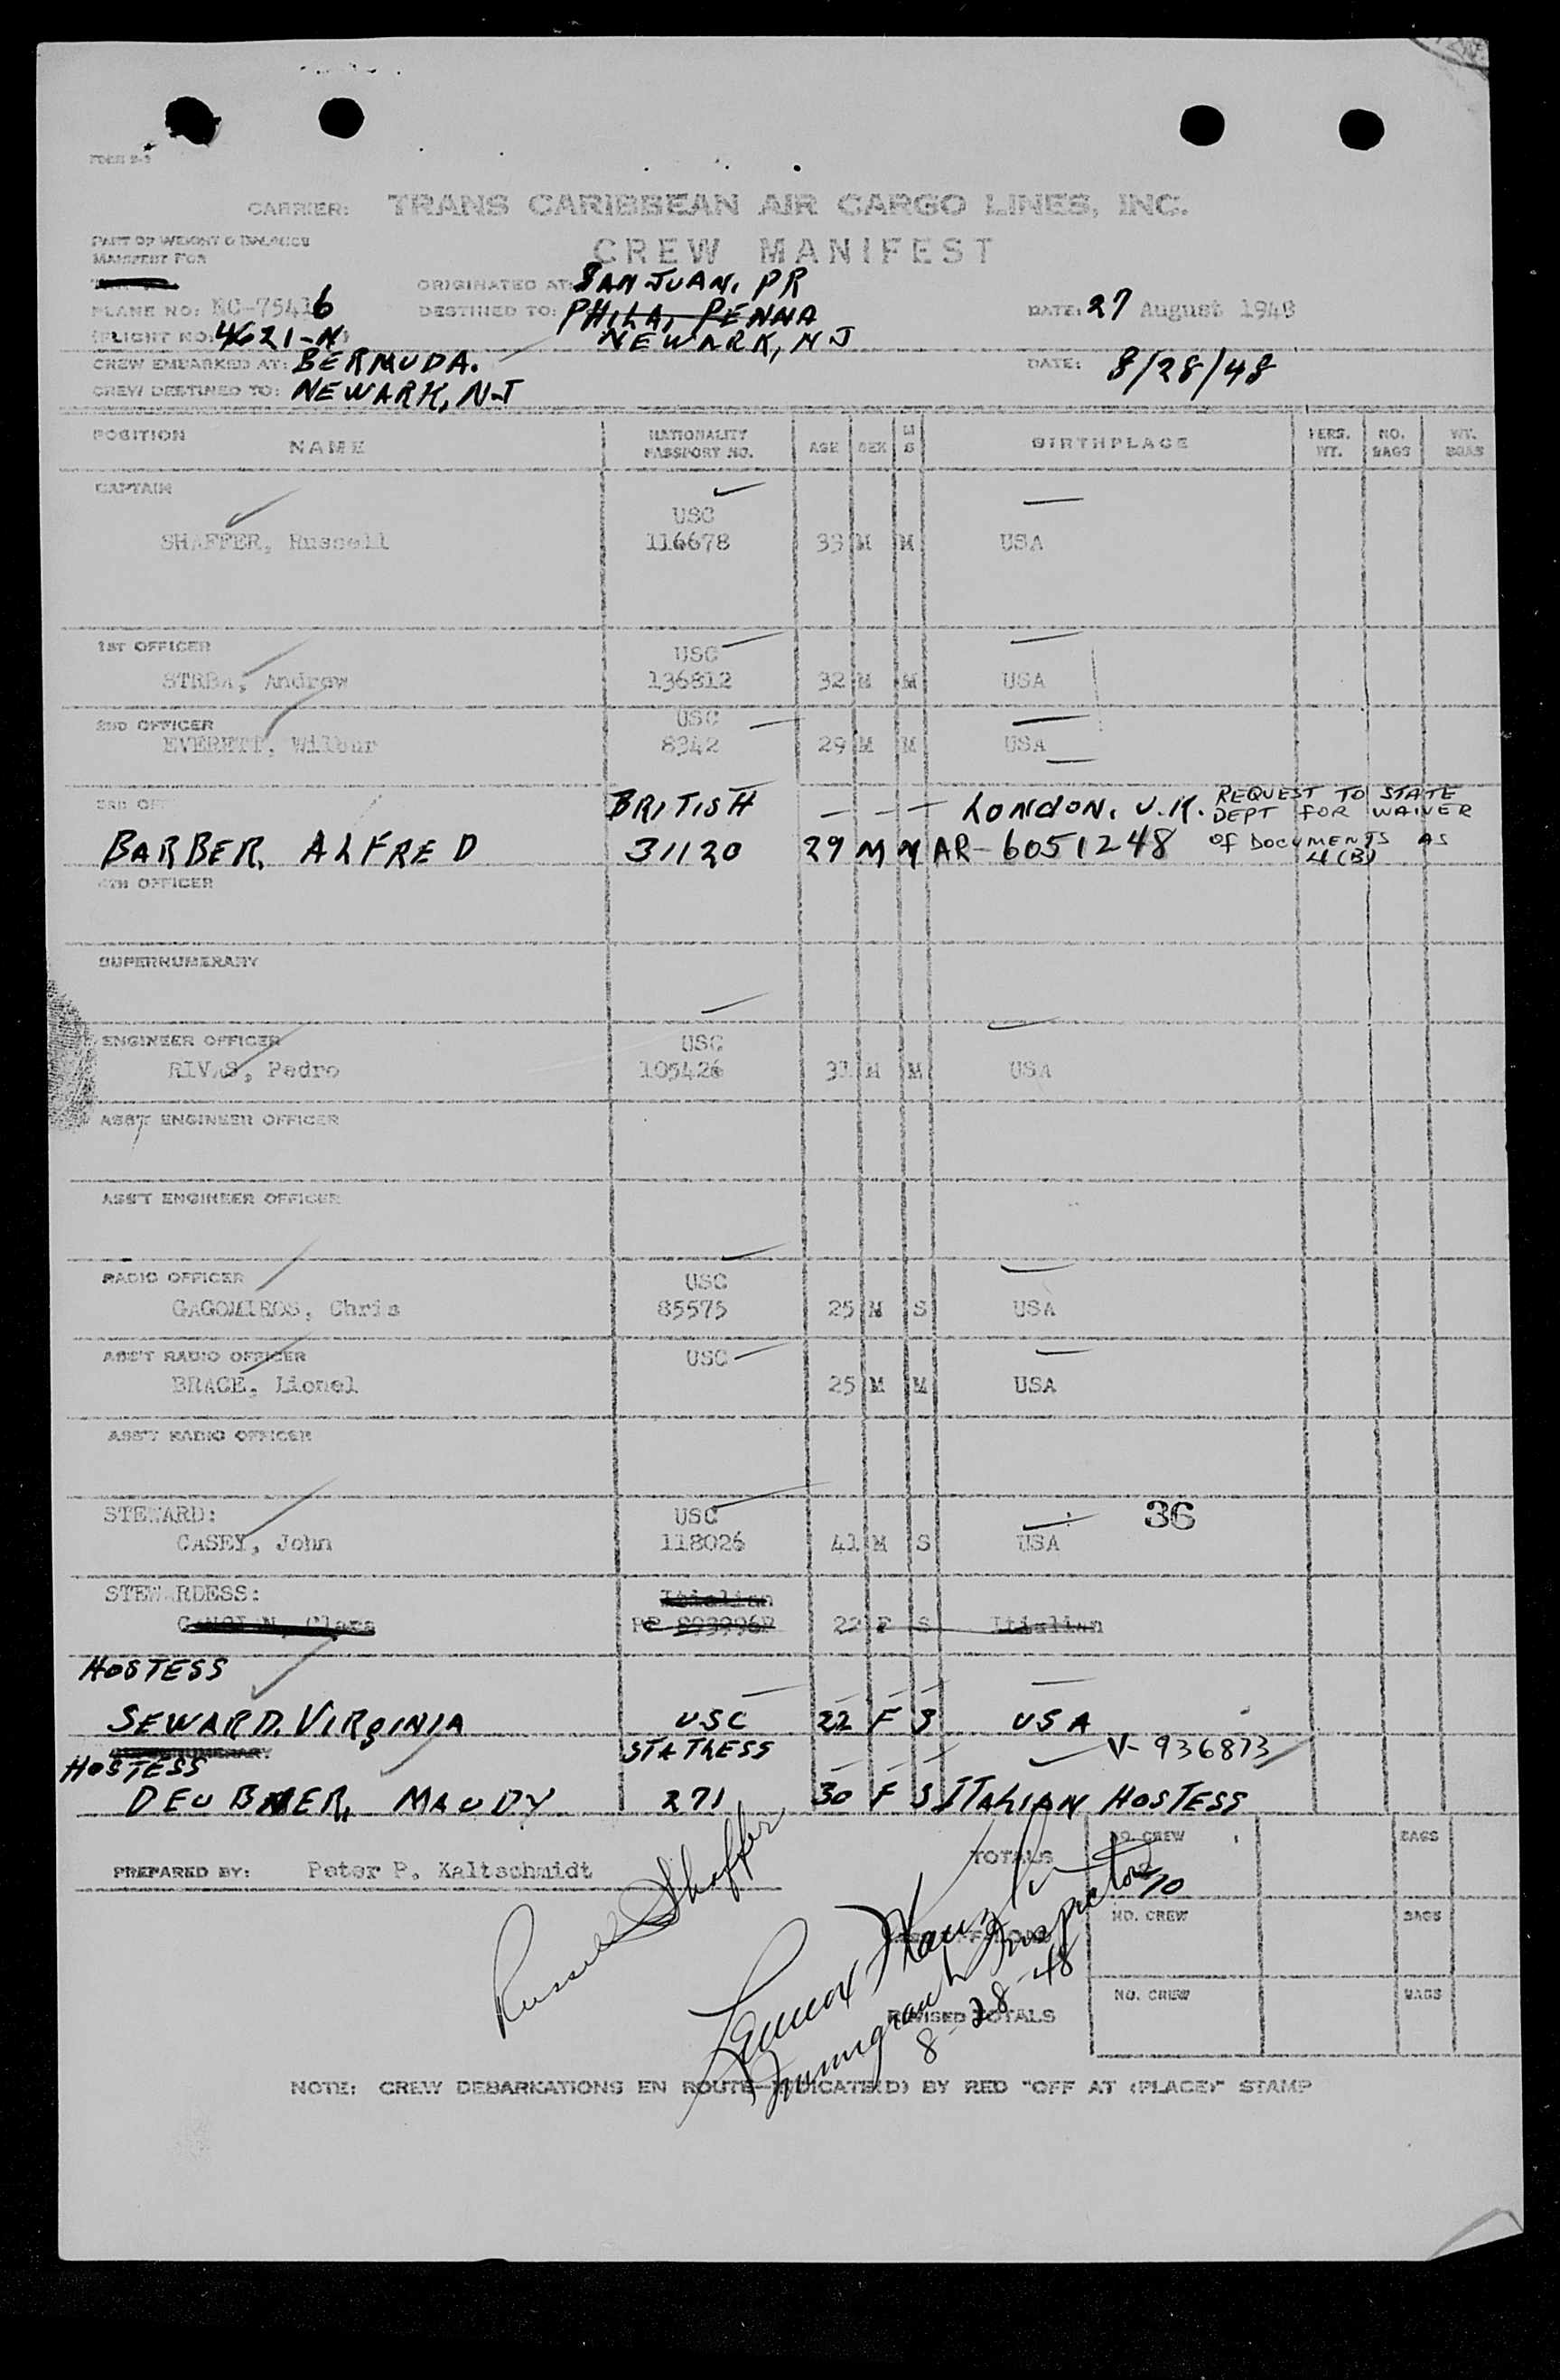 CARRIER: TRANS CARIBBEAN AIR CARGO LINES, INC.
PART OF WEIGHT & BALANCE
MANIFEST FOR
CREW MANIFEST
ORIGINATED AT: SAN JUAN, PR
PLANE NO: NC-75416
DESTINED TO: PHILA, PENNA
NEWARK, NJ
DATE: 27 August 1948
FLIGHT NO: 4621-N
CREW EMBARKED AT: BERMUDA.
DATE: 8/28/48
CREW DESTINED TO: NEWARK, NJ
POSITION NAME NATIONALITY PASSPORT NO. AGE SEX M S BIRTHPLACE PERS. WT. NO. BAGS WT. BGAS
CAPTAIN
USC
SHAFFER, Russell 116678 33 M M USA
1ST OFFICER USC
STRBA, Andrew 136812 32 M M USA
2ND OFFICER USC
EVERETT, Wilbur 8342 29 M M USA
3RD OF BRITISH LONDON, U.K. REQUEST TO STATE
DEPT FOR WAIVER
BARBER, ALFRED 31120 29 M M AR-6051248 OF DOCUMENTS AS
4(B)
4TH OFFICER
SUPERNUMERARY
ENGINEER OFFICER USC
RIVAS, Pedro 105426 31 M M USA
ASS'T ENGINEER OFFICER
ASS'T ENGINEER OFFICER
RADIO OFFICER USC
GAGOMIROS, Chris 85575 25 M S USA
ASS'T RADIO OFFICER USC
BRACE, Lionel 25 M M USA
ASS'T RADIO OFFICER
STEWARD: USC 36
CASEY, John 118026 41 M S USA
STEWARDESS: Itialian
Clara PP 22 F S Itialian
HOSTESS
SEWARD, VIRGINIA USC 22 F S USA
STATLESS V-936873
HOSTESS
DEUBNER, MAUDY 271 30 F S ITALIAN HOSTESS
NO. CREW BAGS
TOTALS 10
PREPARED BY: Peter P. Kaltschmidt
Russell Shaffer
NO. CREW BAGS
Immigrant Inspector
8-28-48
NO. CREW BAGS
REVISED TOTALS
NOTE: CREW DEBARKATIONS EN ROUTE INDICATE(D) BY RED "OFF AT (PLACE)" STAMP